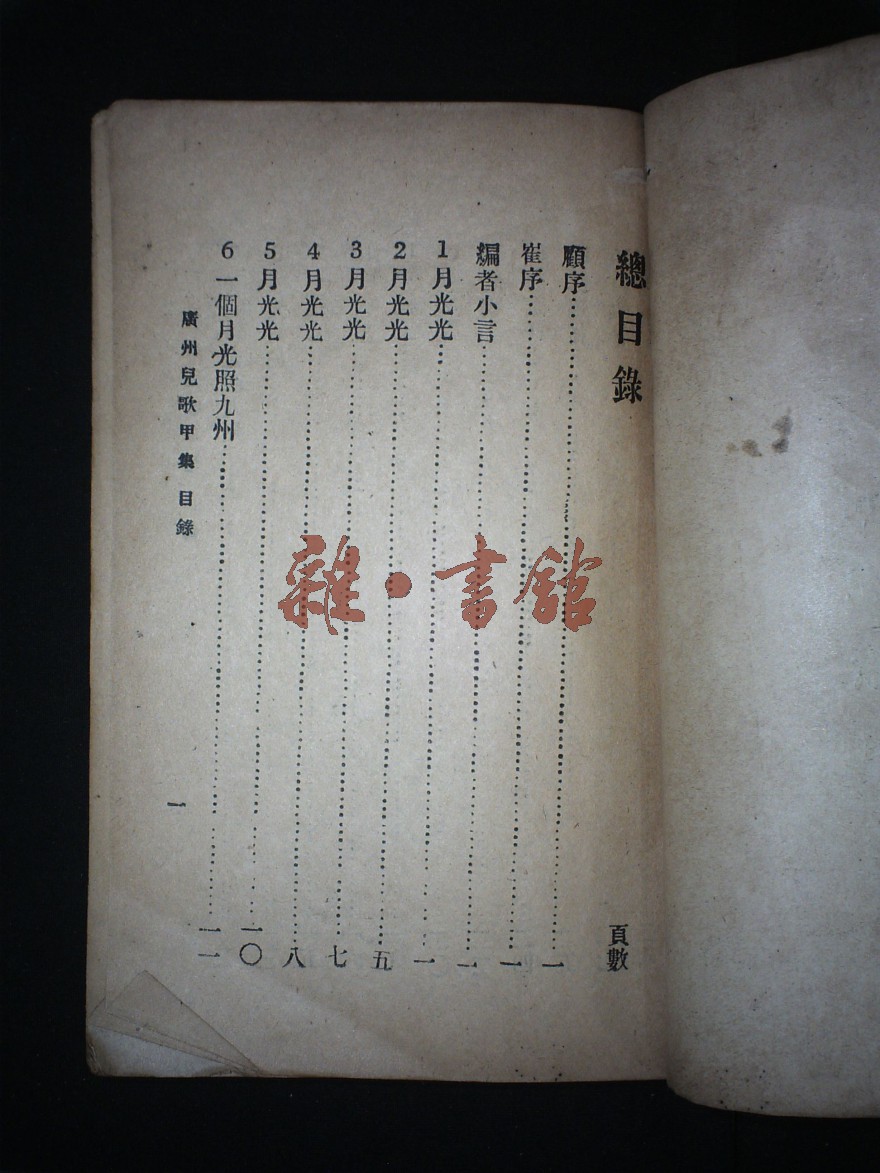 總目錄 頁數
顧序 一
崔序 一
編者小言 一
1月光光 一
2月光光 五
3月光光 七
4月光光 八
5月光光 一〇
6一個月光照九州 一一
廣州兒歌甲集 目錄 一
雜·書館